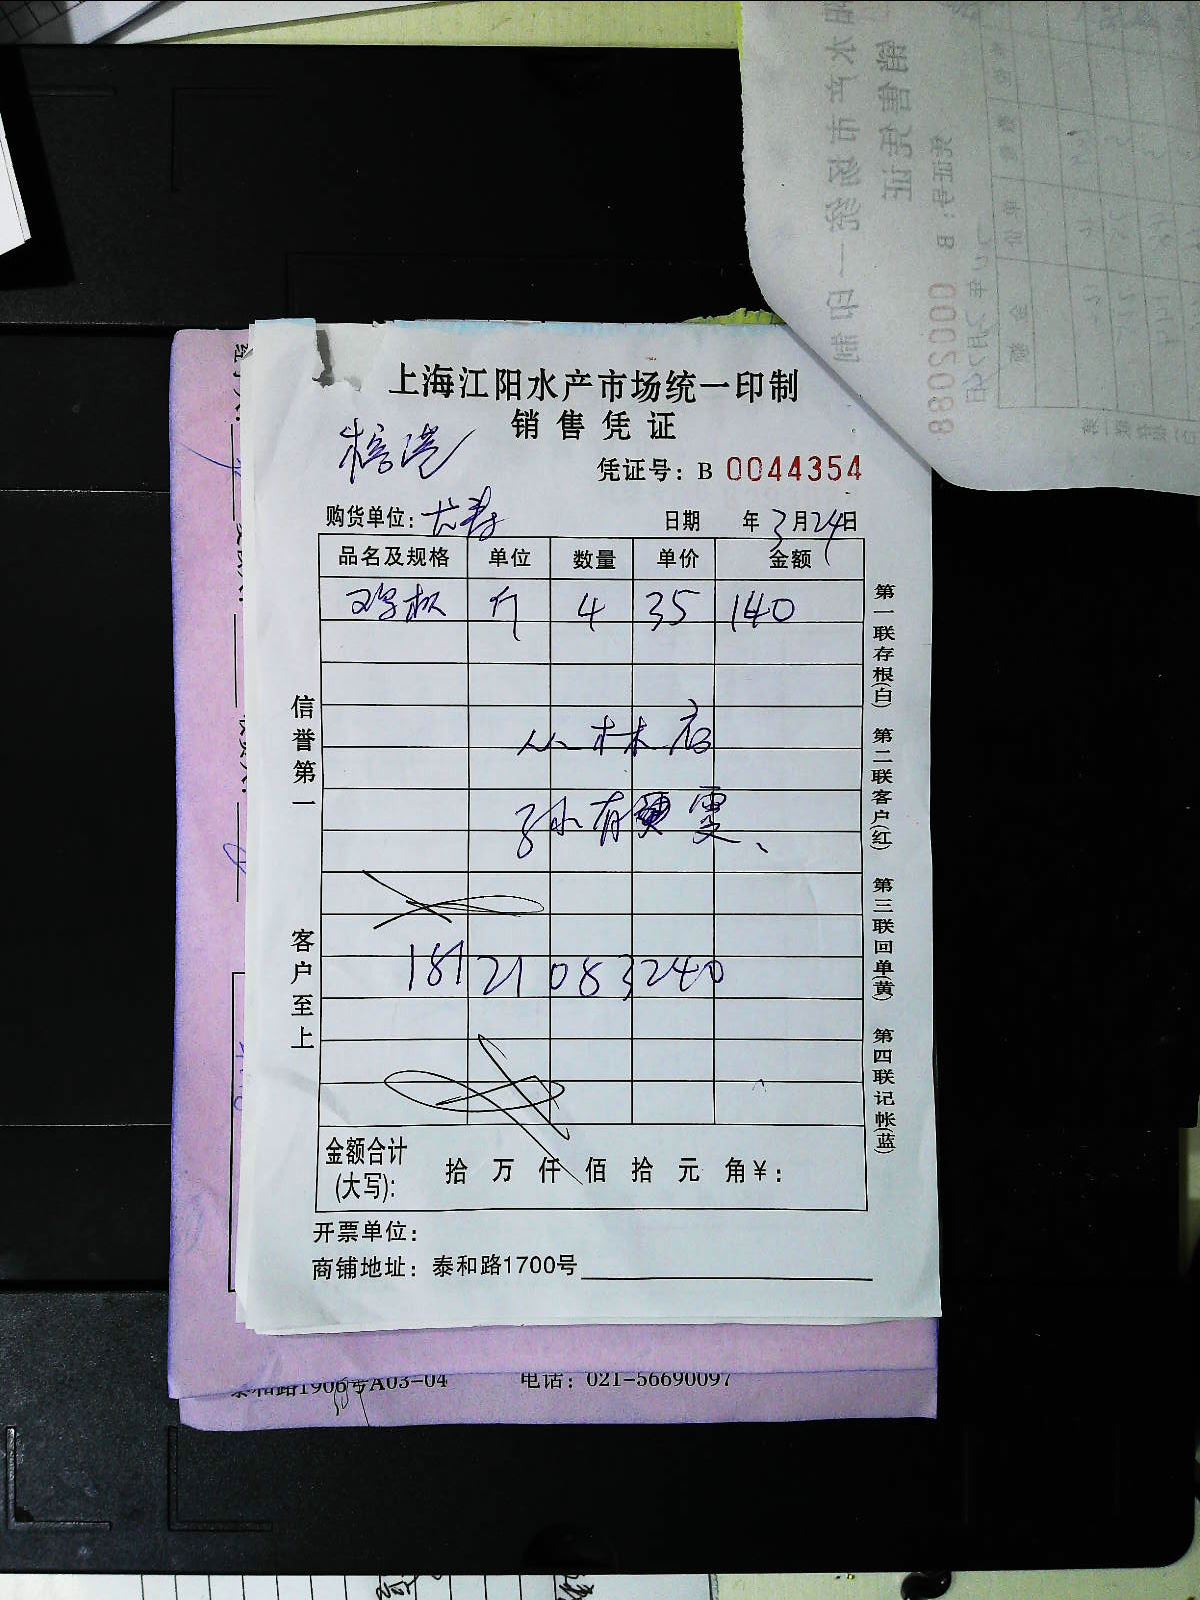 上海江阳水产市场统一印制
销售凭证
凭证号：B 0044354
购货单位：
日期 年 3月24日
品名及规格 单位 数量 单价 金额
斤 4 35 140
从林店
孙有 雯、
18121083240
金额合计
(大写)： 拾 万 仟 佰 拾 元 角¥：
开票单位：
商铺地址：泰和路1700号
信誉第一 客户至上
第一联存根(白) 第二联客户(红) 第三联回单(黄) 第四联记帐(蓝)
泰和路1906号A03-04 电话：021-56690097
销售凭证
凭证号：B 0002088